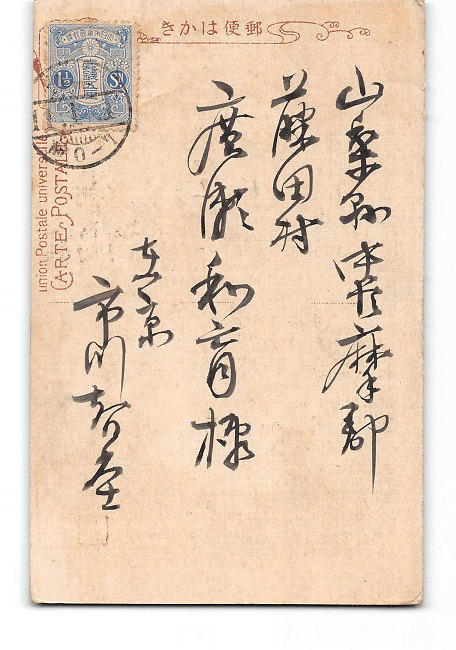 きかはは便郵
山梨縣中巨摩郡
藤田村
廣瀬和育様
東京
市川智堂
union Postale universelle
CARTE POSTALE
1½ Sn